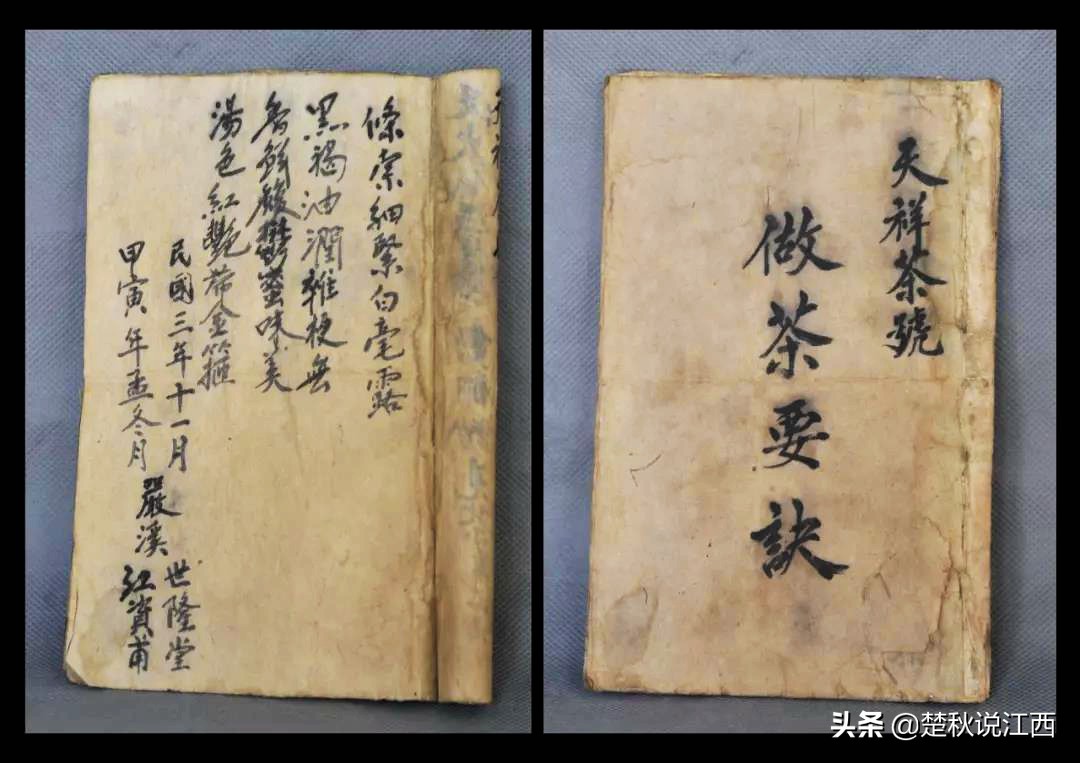 條索細緊白毫露
黑褐油潤雜梗無
香鮮馥鬱蜜味美
湯色紅艷帶金箍
民國三年十一月
甲寅年孟冬月
嚴溪
世隆堂
江資甫
天祥茶號
做茶要訣
头条 @楚秋说江西